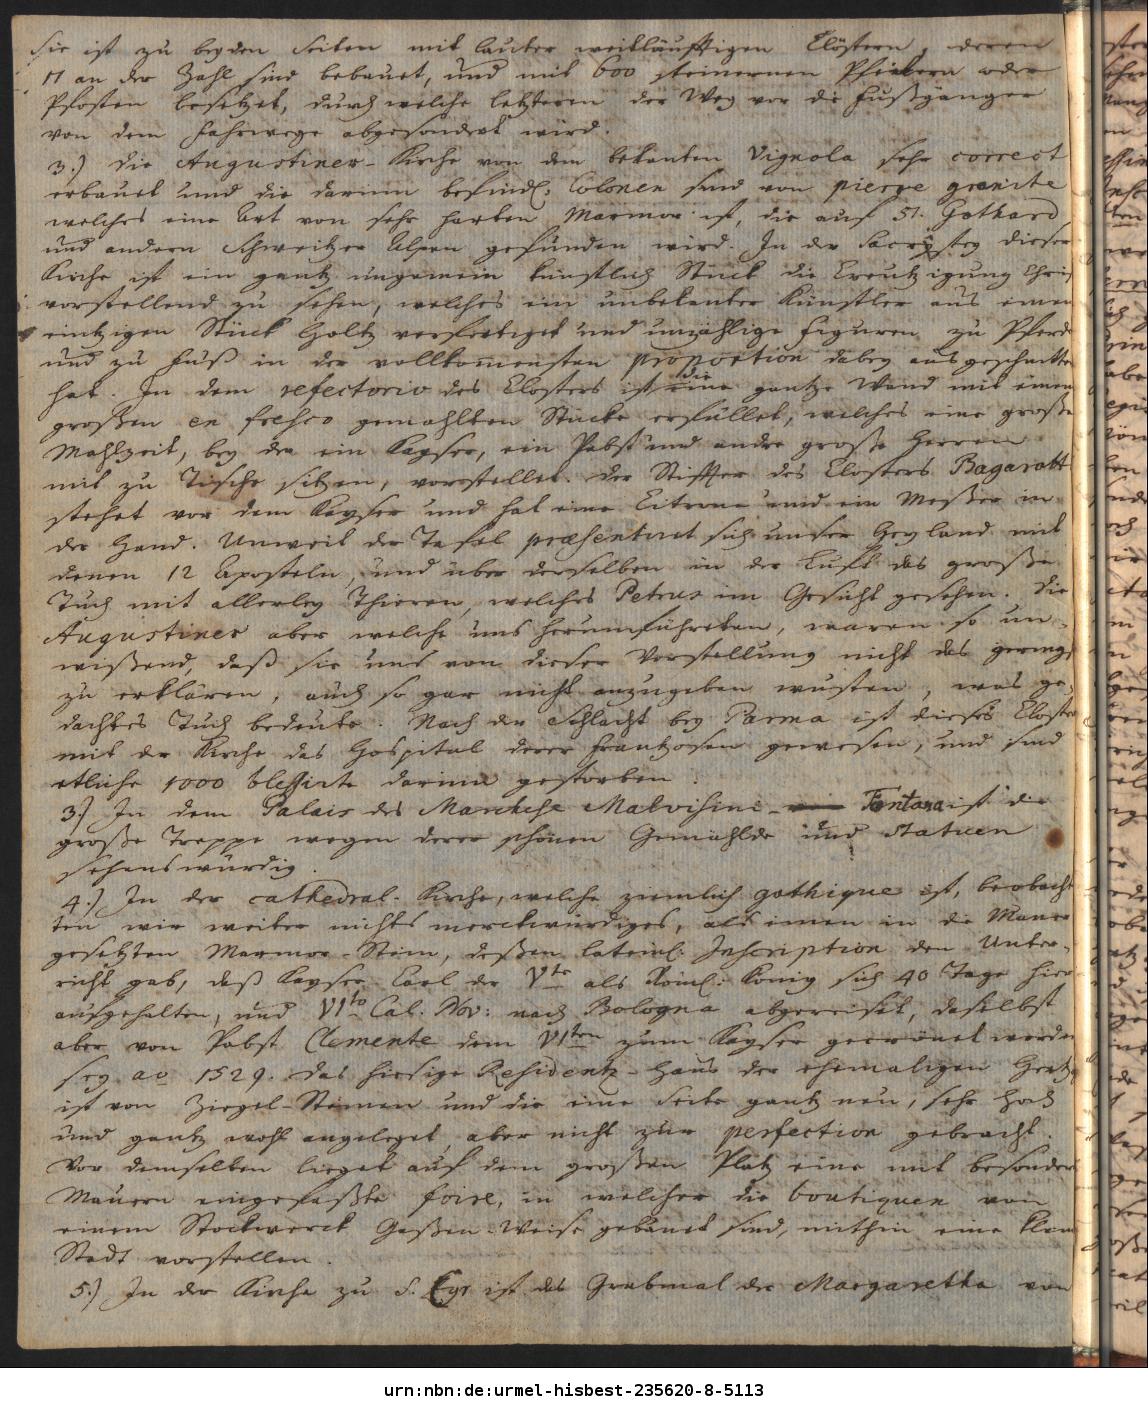 Sie ist zu beyden Seiten mit lauter weitläufftigen Clöstern, deren
11 an der Zahl sind bebauet, und mit 600 steinernen Pfeilern oder
Pfosten besetzet, durch welche letzteren der Weg vor die Fußgänger
von dem Fahrwege abgesondert wird.
3.) Die Augustiner-Kirche von dem bekanten Vignola sehr correct
erbauet und die darinn befindl: Colonen sind von pierre granite
welches eine Art von sehr harten Marmor ist, die auf St. Gothard
und andern Schweitzer Alpen gefunden wird. In der Sacristey dieser
Kirche ist ein gantz ungemein künstlich Stück die Creutzigung Chris
vorstellend zu sehen, welches ein unbekanter Künstler aus einem
eintzigen Stück Holtz verfertiget und unzählige Figuren zu Pferde
und zu Fuß in der vollkommensten proportion dabey ausgeschnitten
hat. In dem refectorio des Closters ist die eine gantze Wand mit einem
großen en fresco gemahlten Stücke erfüllet, welches eine große
Mahlzeit, bey der ein Kayser, ein Pabst und andre große Herren
mit zu Tische sitzen, vorstellet. Der Stiffter des Closters Bagarott
stehet vor dem Kayser und hat eine Citrone und ein Meßer in
der Hand. Unweit der Tafel præsentiret sich unser Heyland mit
denen 12 Aposteln, und über derselben in der Lufft das große
Tuch mit allerley Thieren, welches Petrus im Gesicht gesehen. Die
Augustiner aber welche uns herumführeten, waren so un-
wißend, daß sie uns von dieser Vorstellung nicht das gerings
zu erklären, auch so gar nicht anzugeben wusten, was ge-
dachtes Tuch bedeute. Nach der Schlacht bey Parma ist dieses Closter
mit der Kirche das Hospital derer Frantzosen gewesen, und sind
etliche 1000 blessirte darinn gestorben.
3.) In dem Palais des Marchese Malvisini- Fontana ist die
große Treppe wegen derer schönen Gemählde und Statuen
sehenswürdig.
4.) In der cathedral-Kirche, welche ziemlich gothique ist, beobach-
ten wir weiter nichts merckwürdiges, als einen in die Mauer
gesetzten Marmor-Stein, deßen lateinl: Inscription den Unter-
richt gab, daß Kayser Carl der Vte als Röml: König sich 40 Tage hier
aufgehalten, und VIto Cal. Nov: nach Bologna abgereiset, daselbst
aber von Pabst Clemente dem VIIten zum Kayser gecrönet worden
sey ao 1529. Das hiesige Residentz-Haus der ehemaligen Hertzoge
ist von Ziegel-Steinen und die eine Seite gantz neu, sehr hoch
und gantz wohl angeleget, aber nicht zur perfection gebracht.
Vor demselben lieget auf dem großen Platz eine mit besondern
Mauern eingefaßte foire, in welcher die boutiquen von
einem Stockwerck Gaßen-Weise gebauet sind, mithin eine kleine
Stadt vorstellen.
5.) In der Kirche zu S. ist das Grabmal der Margaretha von